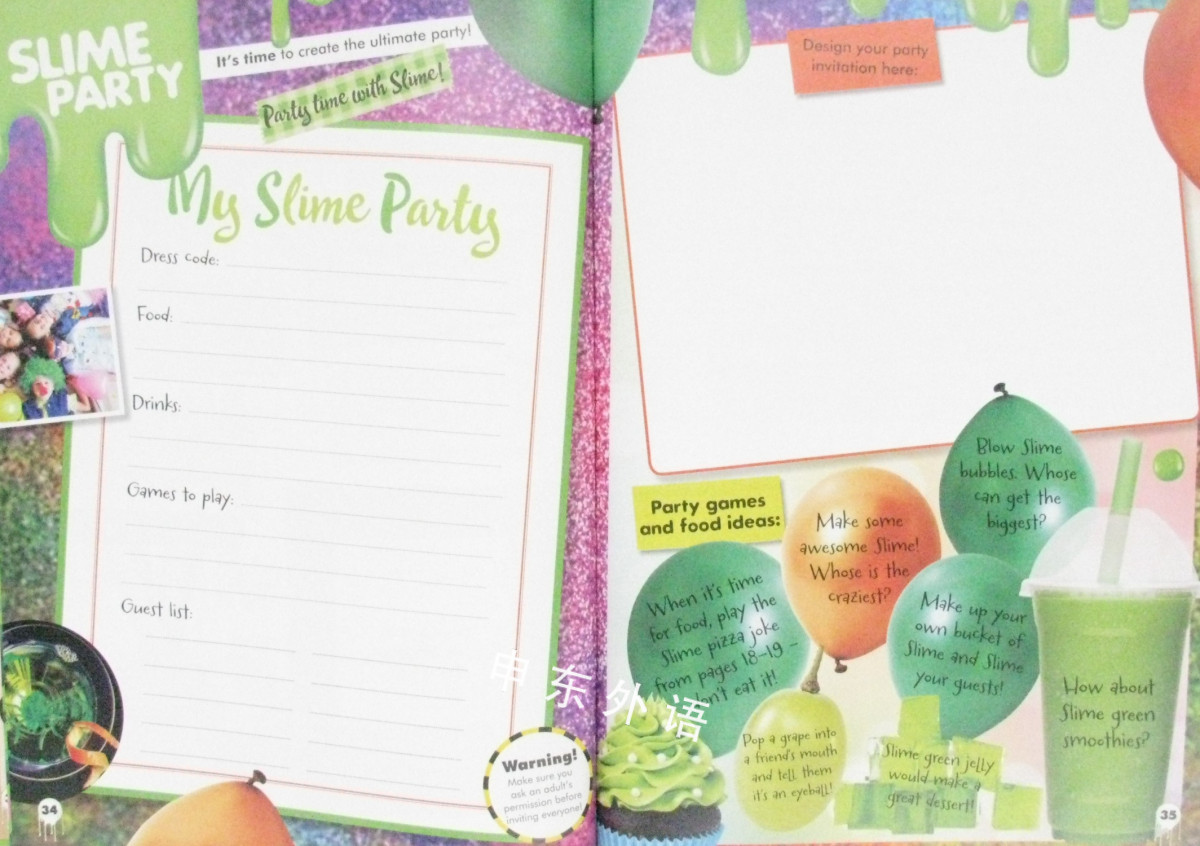 SLIME
PARTY
It's time to create the ultimate party!
Party time with Slime!
My Slime Party
Dress code:
Food:
Drinks:
Games to play:
Guest list:
Warning!
Make sure you
ask an adult's
permission before
inviting everyone!
34
Design your party
invitation here:
Party games
and food ideas:
When it's time
for food, play the
Slime pizza joke
from pages 18–19 –
don't eat it!
Make some
awesome Slime!
Whose is the
craziest?
Blow Slime
bubbles. Whose
can get the
biggest?
Make up your
own bucket of
Slime and Slime
your guests!
Pop a grape into
a friend's mouth
and tell them
it's an eyeball!
Slime green jelly
would make a
great dessert!
How about
Slime green
smoothies?
35
申东外语